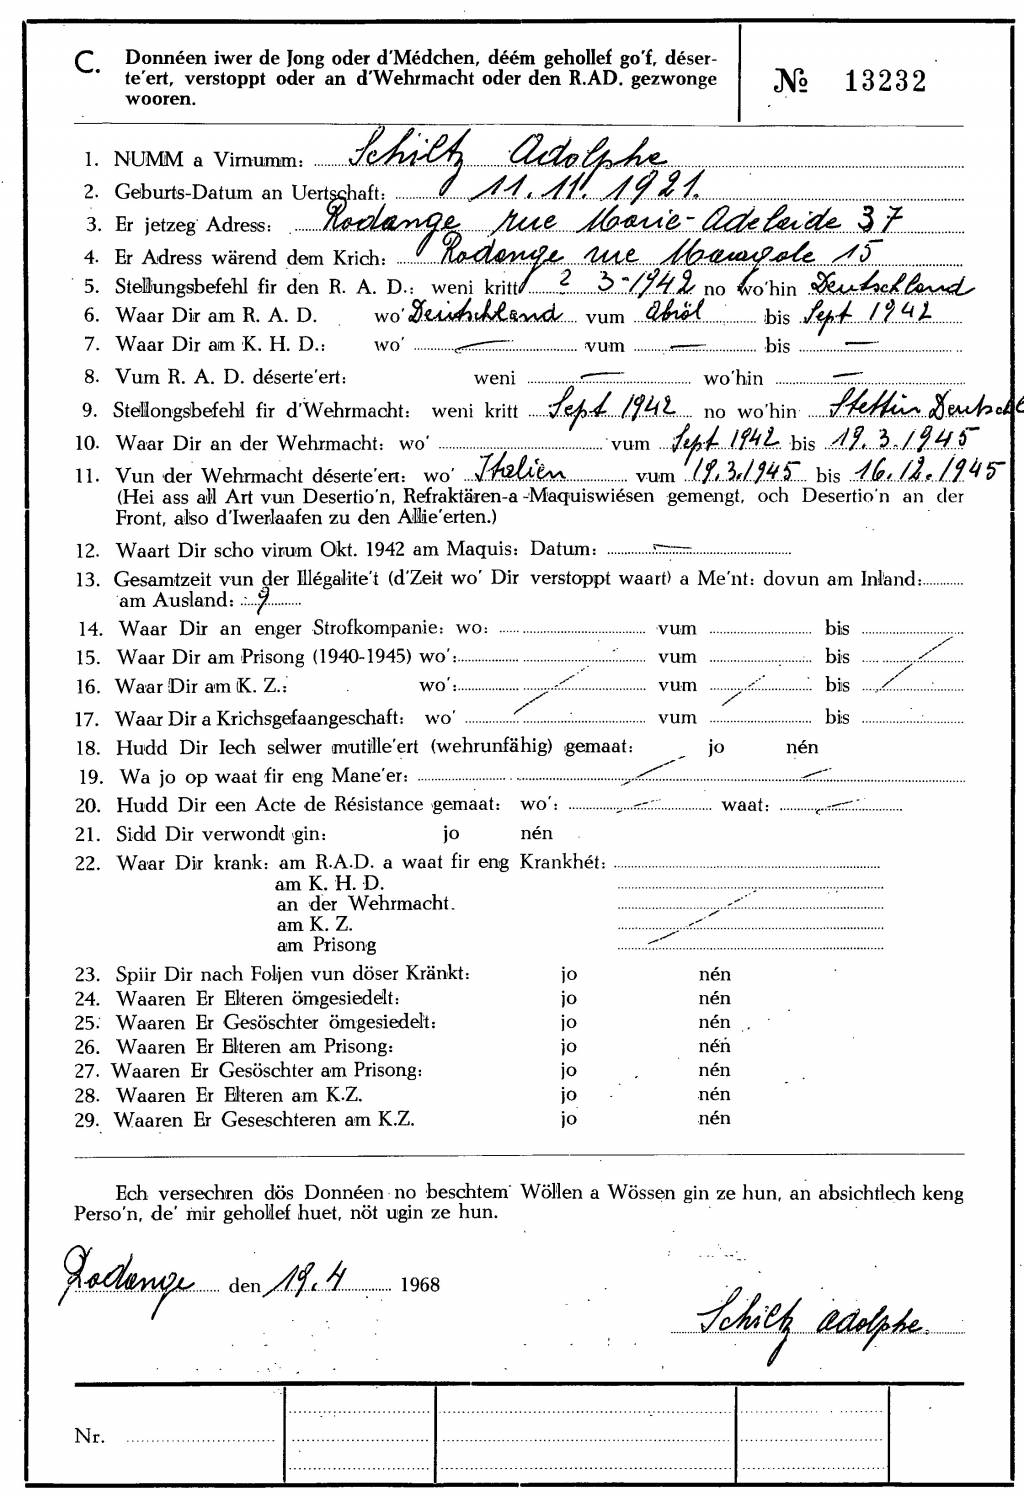 C. Donnéen iwer de Jong oder d'Médchen, déém gehollef go'f, déser-
te'ert, verstoppt oder an d'Wehrmacht oder den R.AD. gezwonge
wooren.
№ 13232
1. NUMM a Virnumm: Schiltz Adolphe
2. Geburts-Datum an Uertschaft: 11.11.1921.
3. Er jetzeg Adress: Rodange rue Marie-Adelaide 37
4. Er Adress wärend dem Krich: Rodange rue 15
5. Stellungsbefehl fir den R. A. D.: weni kritt 2 3-1942 no wo'hin Deutschland
6. Waar Dir am R. A. D. wo' Deutschland vum Abril bis Sept 1942
7. Waar Dir am K. H. D.: wo' — vum — bis —
8. Vum R. A. D. déserte'ert: weni — wo'hin —
9. Stellongsbefehl fir d'Wehrmacht: weni kritt Sept 1942 no wo'hin Stettin Deutschl
10. Waar Dir an der Wehrmacht: wo' vum Sept 1942 bis 19.3.1945
11. Vun der Wehrmacht déserte'ert: wo' Italien vum 19.3.1945 bis 16.12.1945
(Hei ass all Art vun Desertio'n, Refraktären-a-Maquiswiésen gemengt, och Desertio'n an der
Front, also d'Iwerlaafen zu den Allie'erten.)
12. Waart Dir scho virum Okt. 1942 am Maquis: Datum: —
13. Gesamtzeit vun der Illégalite't (d'Zeit wo' Dir verstoppt waart) a Me'nt: dovun am Inland:
am Ausland: 9
14. Waar Dir an enger Strofkompanie: wo: vum bis
15. Waar Dir am Prisong (1940-1945) wo': vum bis
16. Waar Dir am K. Z.: wo': vum bis
17. Waar Dir a Krichsgefaangeschaft: wo' vum bis
18. Hudd Dir Iech selwer mutille'ert (wehrunfähig) gemaat: jo nén
19. Wa jo op waat fir eng Mane'er:
20. Hudd Dir een Acte de Résistance gemaat: wo': waat:
21. Sidd Dir verwondt gin: jo nén
22. Waar Dir krank: am R.A.D. a waat fir eng Krankhét:
am K. H. D.
an der Wehrmacht.
am K. Z.
am Prisong
23. Spiir Dir nach Foljen vun döser Kränkt: jo nén
24. Waaren Er Elteren ömgesiedelt: jo nén
25. Waaren Er Gesöschter ömgesiedelt: jo nén
26. Waaren Er Elteren am Prisong: jo nén
27. Waaren Er Gesöschter am Prisong: jo nén
28. Waaren Er Elteren am K.Z. jo nén
29. Waaren Er Geseschteren am K.Z. jo nén
Ech versechren dös Donnéen no beschtem Wöllen a Wössen gin ze hun, an absichtlech keng
Perso'n, de' mir gehollef huet, nöt ugin ze hun.
Rodange den 19.4 1968
Schiltz Adolphe
Nr.